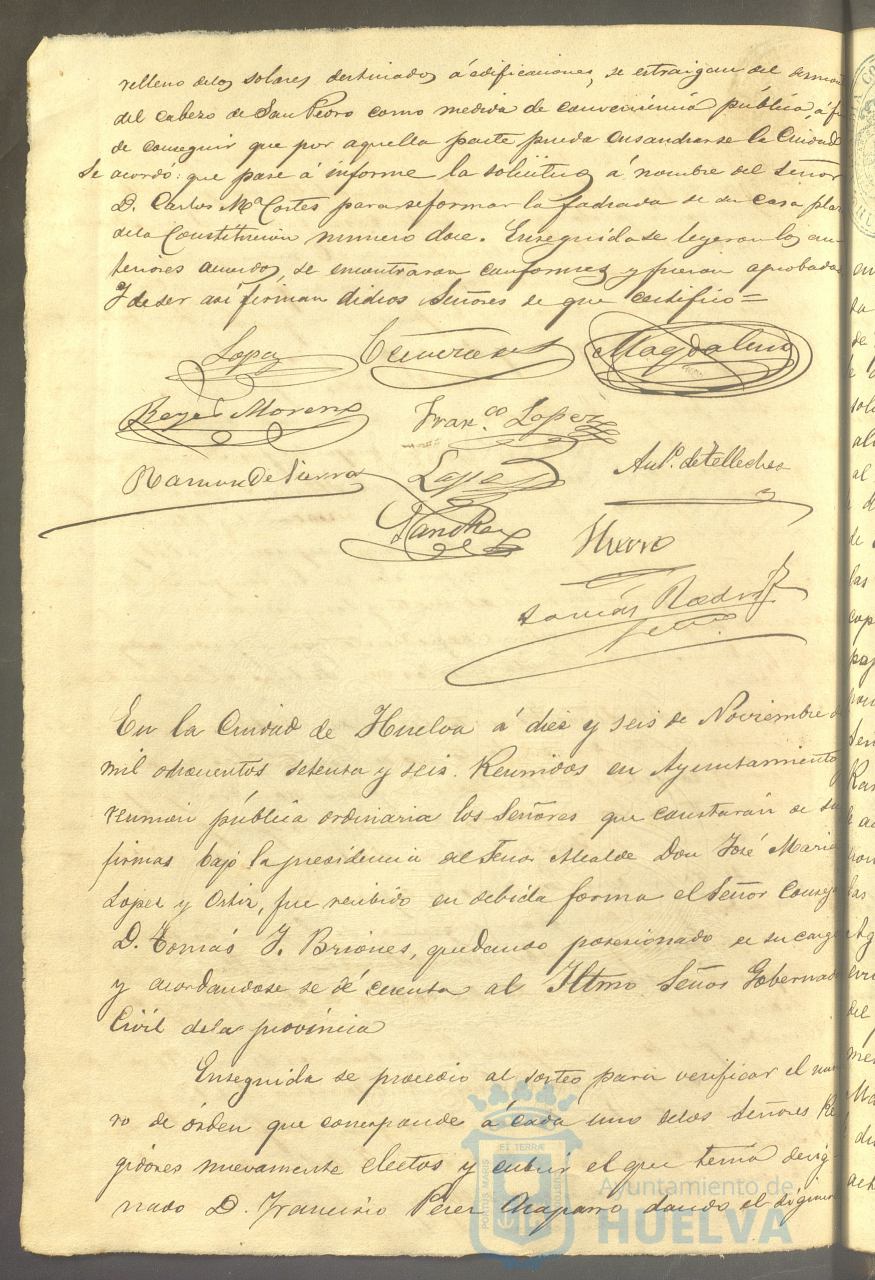 relleno delos solares destinados á edificaciones, se estraigan del
del cabezo de San Pedro como medida de conveniencia pública, á fi
de conseguir que por aquella parte pueda ensancharse la Ciudad
Se acordó: que pase á informe la solicitud á nombre del Señor
D. Carlos Mª Cortes para reformar la fachada de su casa plaz
dela Constitucion numero doce. Enseguida se leyeron los an-
teriores acuerdos, se encontraron conformes y fueron aprobados
Y de ser asi firman dichos Señores de que certifico=
Lopez Magdaleno
Reyes Moreno Fran.co Lopez
Ramon de Sierra Antº. de Tellechea
Sanchez Hierro
Tomás Rodrig
En la Ciudad de Huelva á diez y seis de Noviembre de
mil ochocientos setenta y seis. Reunidos en Ayuntamiento
reunion pública ordinaria los Señores que constarán de su
firmas bajo la presidencia del Señor Alcalde Don José Maria
Lopez y Ortiz, fue recibido en debida forma el Señor Conceja
D. Tomás J. Briones, quedando posesionado de su cargo
y acordandose se dé cuenta al Iltmo Señor Gobernad
Civil dela provincia
Enseguida se procedio al sorteo para verificar el nume
ro de órden que corresponde á cada uno delos Señores Re
gidores nuevamente electos y cubrir el que tenia desig-
nado D. Francisco Perez Chaparro dando el siguien
PORTUS MARIS
ET TERRÆ
Ayuntamiento de
HUELVA